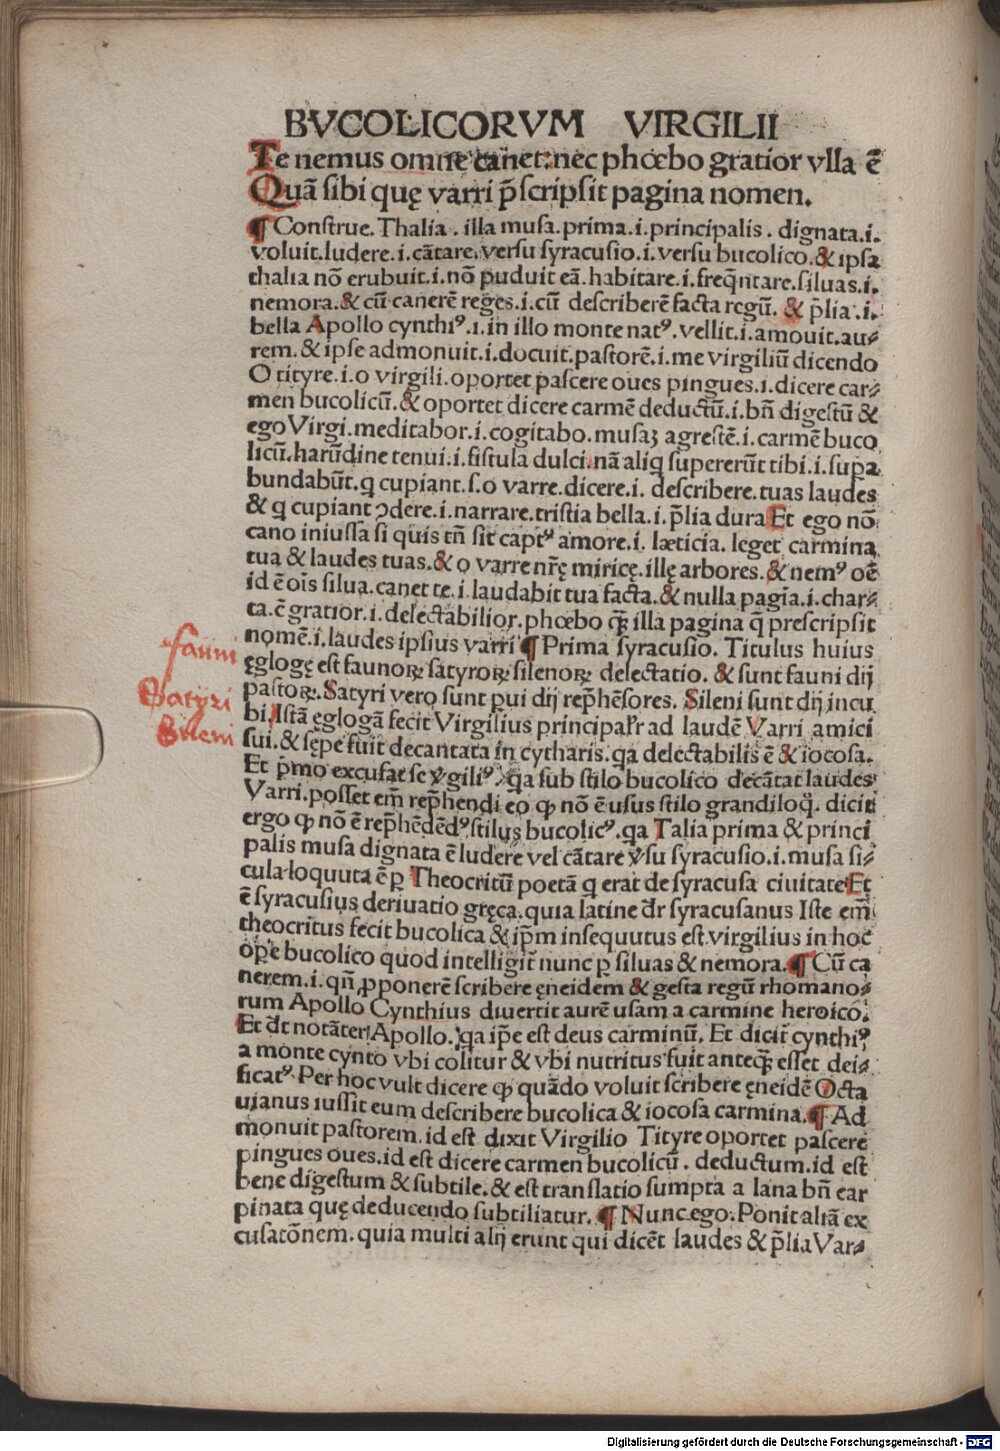 BVCOLICORVM VIRGILII
Te nemus omne canet: nec phœbo gratior vlla ē
Quā sibi quę varri p̄scripsit pagina nomen.
¶ Construe. Thalia. illa musa. prima. i. principalis. dignata. i.
voluit. ludere. i. cātare. versu syracusio. i. versu bucolico. & ipsa
thalia nō erubuit. i. nō puduit eā. habitare. i. freq̄ntare. siluas. i.
nemora. & cū canerē reges. i. cū describerē facta regū. & p̄lia. i.
bella Apollo cynthiꝰ. i. in illo monte natꝰ. vellit. i. amouit. au⸗
rem. & ipse admonuit. i. docuit. pastorē. i. me virgiliū dicendo
O tityre. i. o virgili. oportet pascere oues pingues. i. dicere car⸗
men bucolicū. & oportet dicere carmē deductū. i. bn̄ digestū &
ego Virgi. meditabor. i. cogitabo. musaꝫ agrestē. i. carmē buco
licū. harūdine tenui. i. fistula dulci. nā aliq̇ supererūt tibi. i. supa
bundabūt. q cupiant. s. o varre. dicere. i. describere. tuas laudes
& q cupiant ↄdere. i. narrare. tristia bella. i. p̄lia dura Et ego nō
cano iniussa si quis tn̄ sit captꝰ amore. i. læticia. leget carmina
tua & laudes tuas. & o varre nr̄ę miricę. illę arbores. & nemꝰ oē
id ē oīs silua. canet te. i. laudabit tua facta. & nulla pagīa. i. char⸗
ta. ē gratior. i. delectabilior. phœbo qꝫ̄ illa pagina q̄ prescripsit
nomē. i. laudes ipsius varri ¶ Prima syracusio. Titulus huius
fauni
ęglogę est faunoꝝ satyroꝝ silenoꝝ delectatio. & sunt fauni dij
Satyri
pastoꝝ. Satyri vero sunt pui dij rep̄hēsores. Sileni sunt dij incu
Sileni
bi. Istā ęglogā fecit Virgilius principalr̄ ad laudē Varri amici
sui. & sępe fuit decantata in cytharis. qa delectabilis ē & iocosa.
Et p̄mo excusat se v̓giliꝰ. qa sub stilo bucolico decātat laudes
Varri. posset em̄ rep̄hendi eo ꝙ nō ē usus stilo grandiloq̄. dicit
ergo ꝙ nō ē rep̄hēdēdꝰ stilus bucolicꝰ. qa Talia prima & princi
palis musa dignata ē ludere vel cātare v̓su syracusio. i. musa si⸗
cula loquuta ē ꝑ Theocritū poetā q erat de syracusa ciuitate Et
ē syracusius deriuatio gręca. quia latine dr̄ syracusanus Iste em̄
theocritus fecit bucolica & ip̄m insequutus est. virgilius in hoc
ope bucolico quod intelligit̄ nunc ꝑ siluas & nemora. ¶ Cū ca
nerem. i. qn̄ ꝓponerē scribere ęneidem & gesta regū rhomano⸗
rum Apollo Cynthius diuertit aurē usam a carmine heroico.
Et dr̄ notāter Apollo. qa ip̄e est deus carminū. Et dicit̄ cynthiꝰ
a monte cynto vbi colitur & vbi nutritus fuit anteqꝫ̄ esset dei⸗
ficatꝰ. Per hoc vult dicere ꝙ quādo voluit scribere ęneidē Octa
uianus iussit eum describere bucolica & iocosa carmina. ¶ Ad
monuit pastorem. id est dixit Virgilio Tityre oportet pascere
pingues oues. id est dicere carmen bucolicū. deductum. id est
bene digestum & subtile. & est translatio sumpta a lana bn̄ car
pinata quę deducendo subtiliatur. ¶ Nunc. ego. Ponit aliā ex
cusatōnem. quia multi alij erunt qui dicēt laudes & p̄lia Var⸗
Digitalisierung gefördert durch die Deutsche Forschungsgemeinschaft - DFG